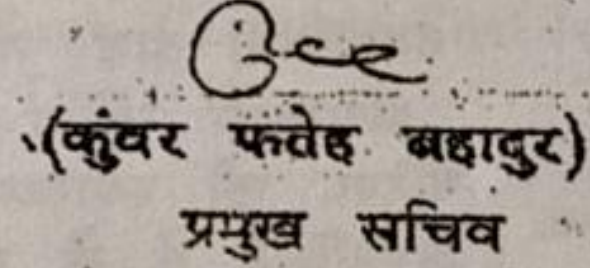 (कुंवर फतेह बहादुर)
प्रमुख सचिव